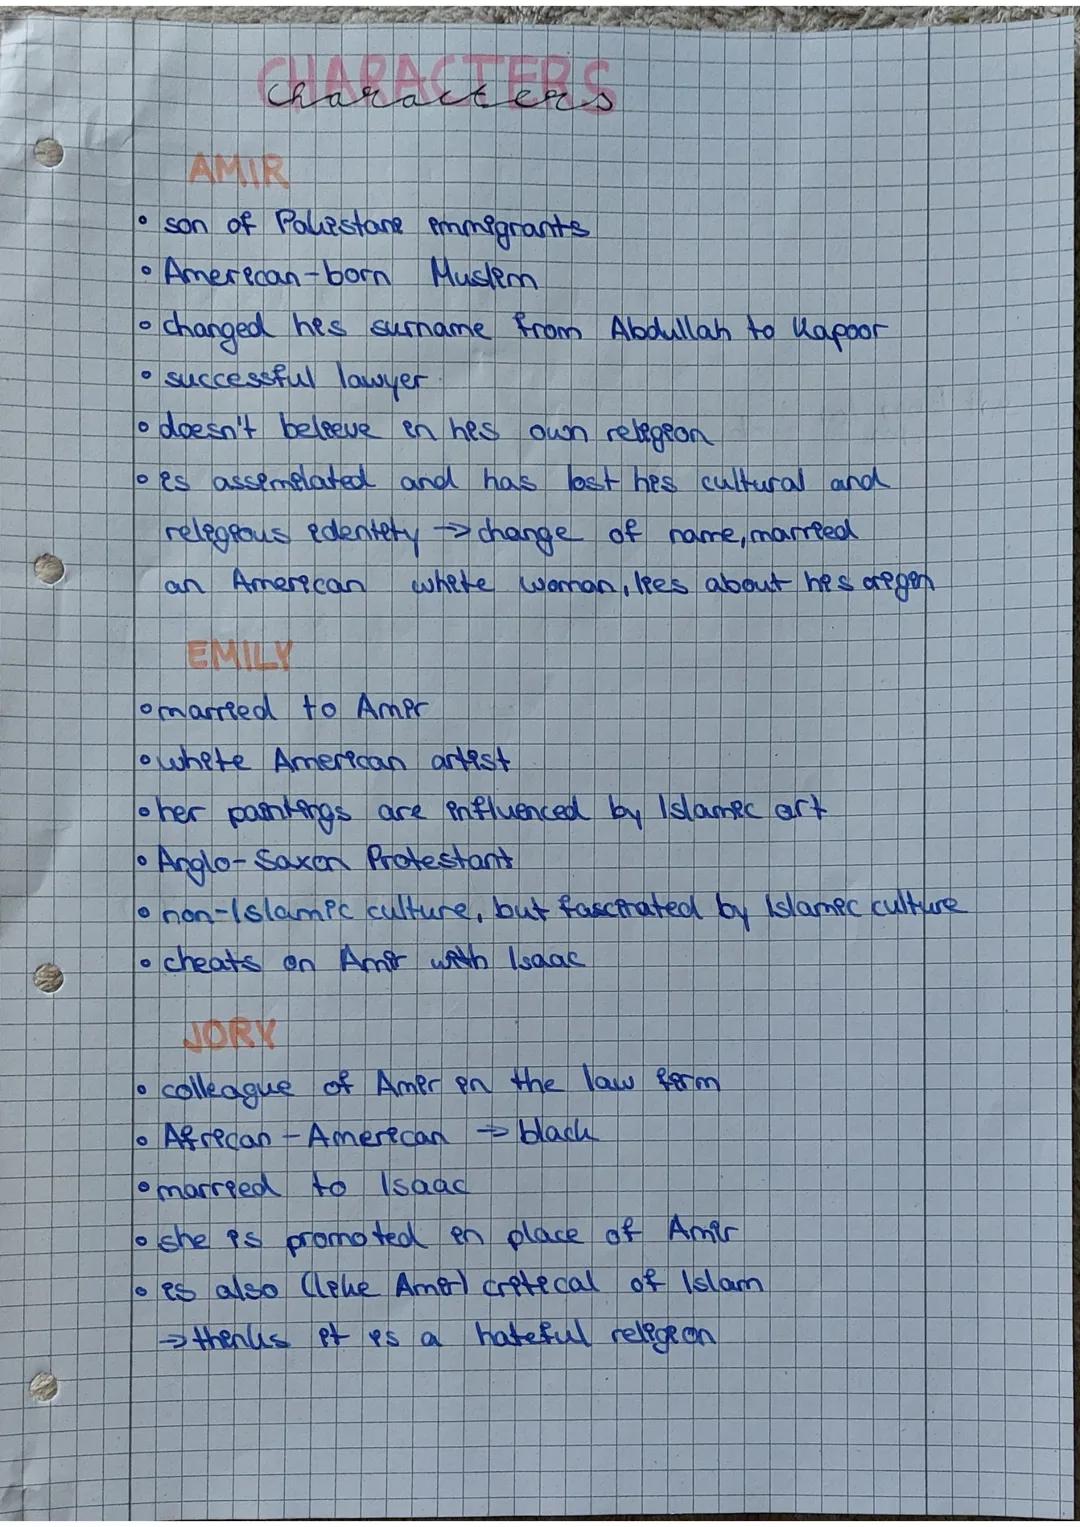 CHARACTERS
characters
AMIR
• son of Pakistani immigrants
• American-born Muslim
• changed his surname from Abdullah to Kapoor
• successful lawyer
• doesn't believe in his own religion
• is assimilated and has lost his cultural and
religious identity → change of name, married
an American white woman, lies about his origin
EMILY
• married to Amir
• white American artist
• her paintings are influenced by Islamic art
• Anglo-Saxon Protestant
• non-Islamic culture, but fascinated by Islamic culture
• cheats on Amir with Isaac
JORY
• colleague of Amir in the law firm
• African-American → black
• married to Isaac
• she is promoted in place of Amir
• is also (like Amir) critical of Islam
→ thinks it is a hateful religion